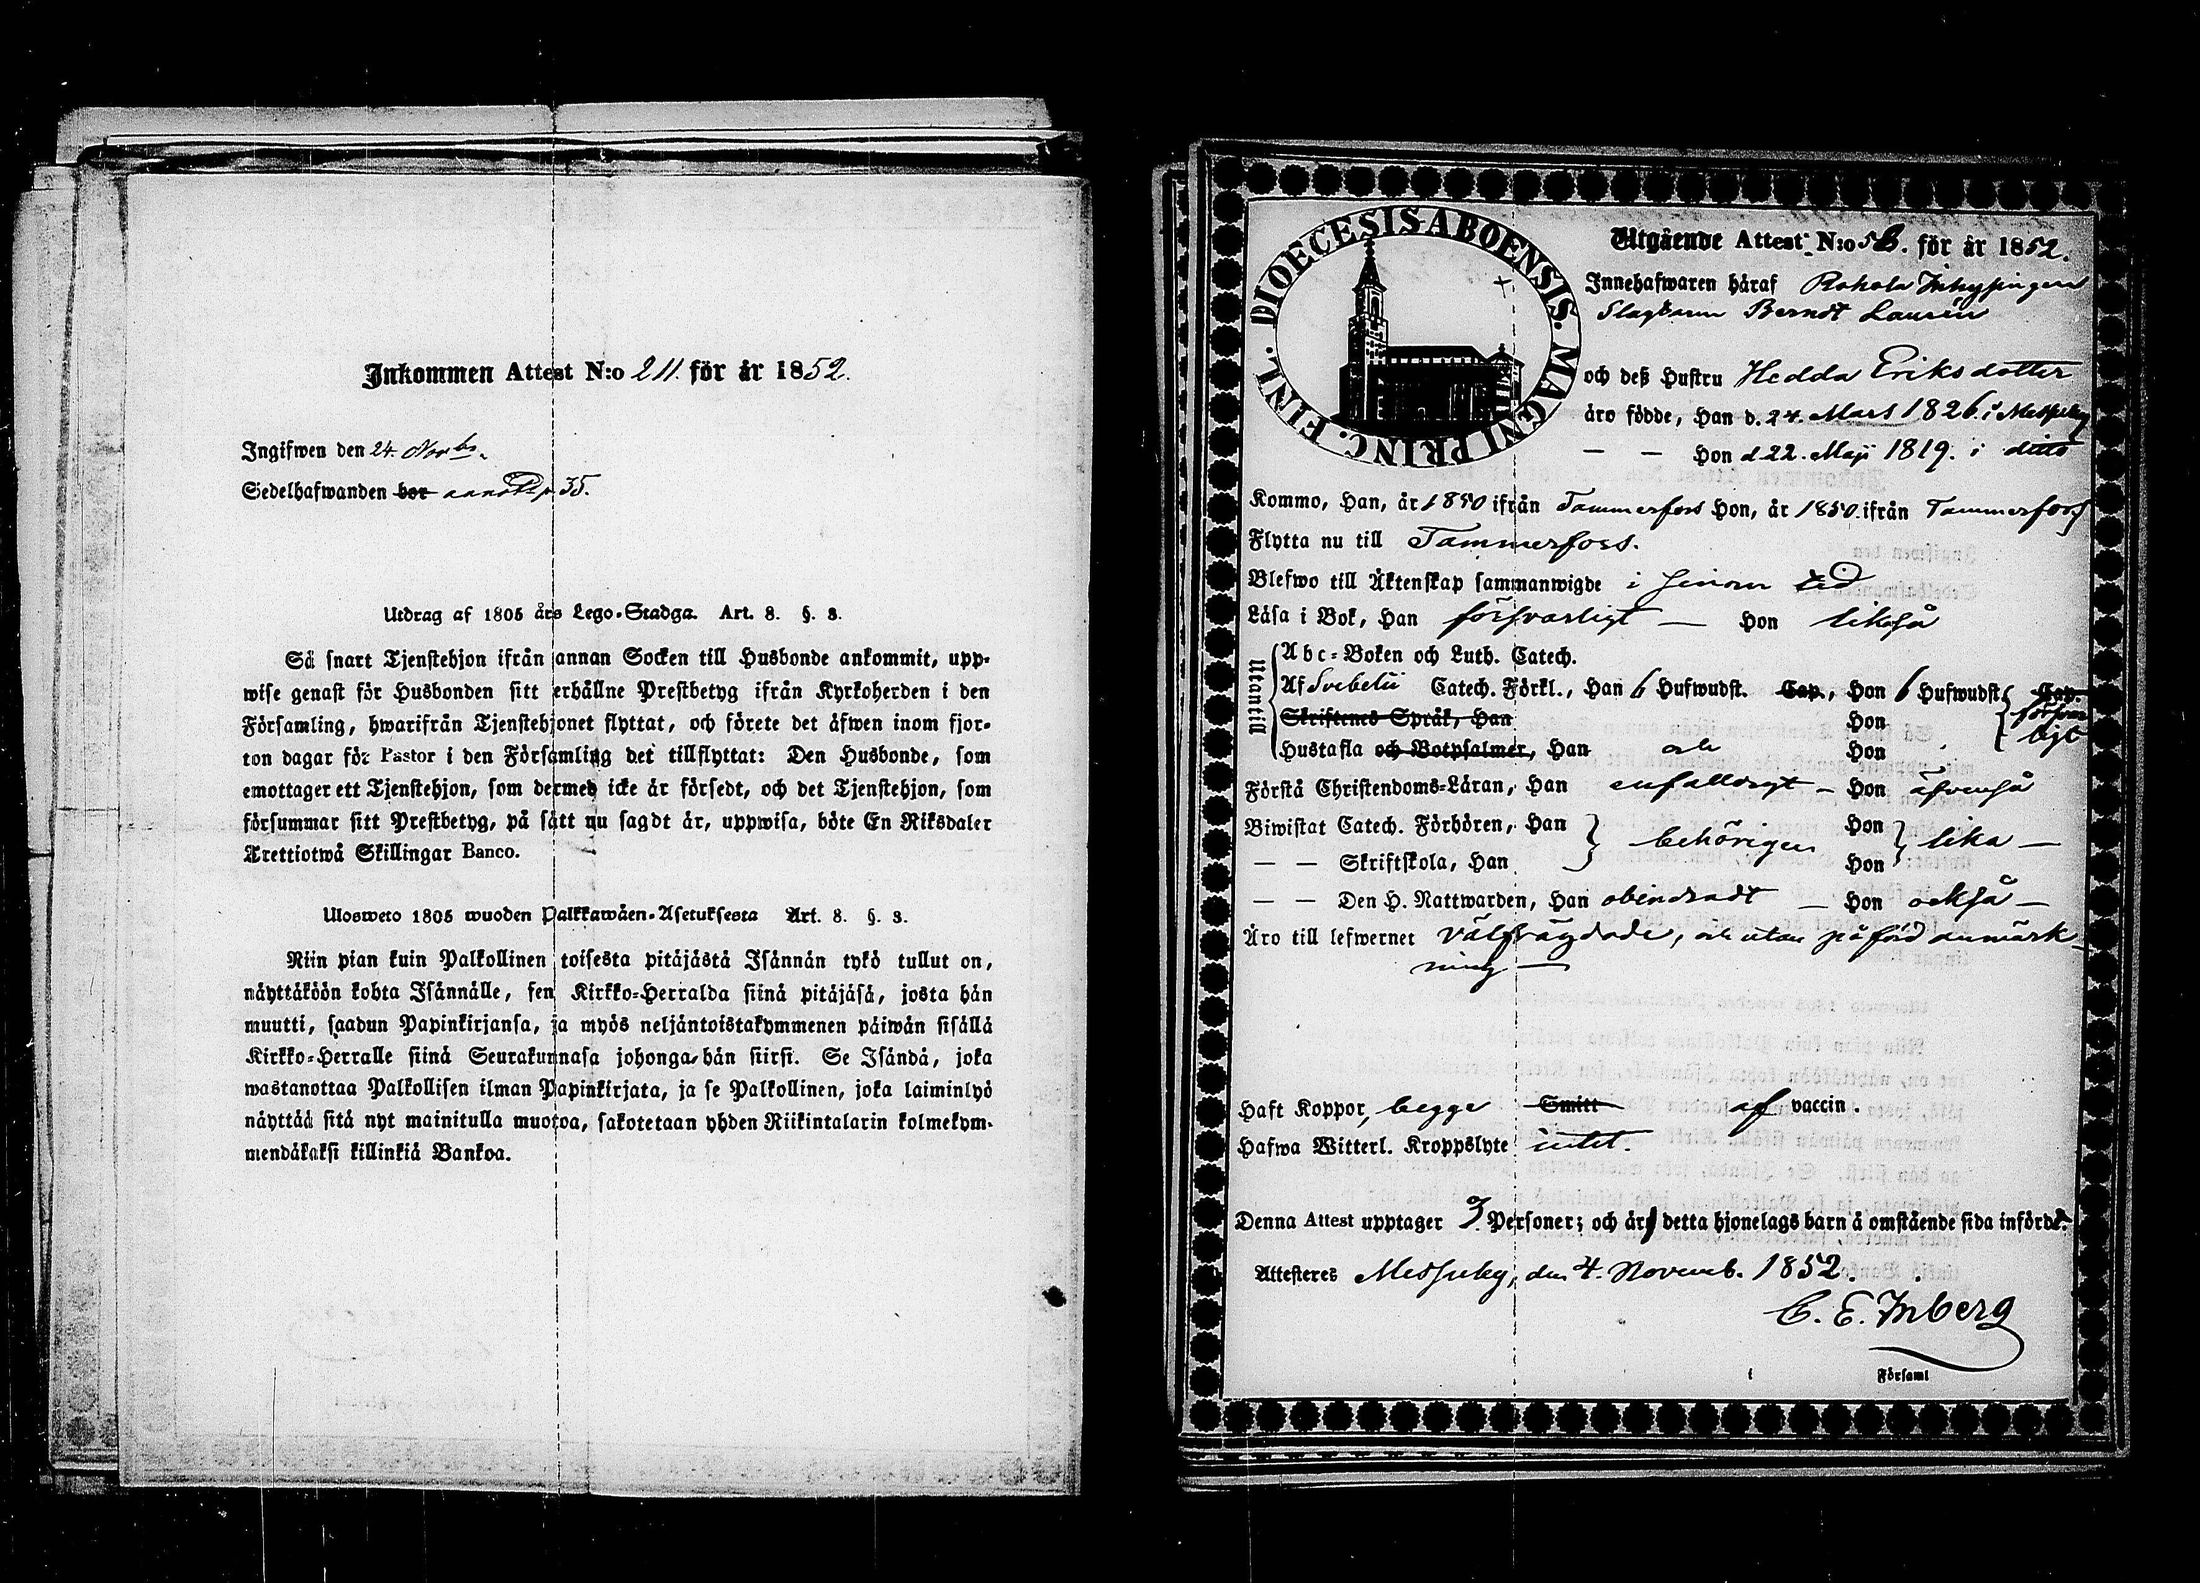 Inkommen Attest N:o 211. för år 1852.
Ingifwen den 24. Novbr.
Sedelhafwanden bor annot. p 35.
Utdrag af 1805 års Lego-Stadga. Art. 8. §. 3.
Så snart Tjenstehjon ifrån annan Socken till Husbonde ankommit, upp-
wise genast för Husbonden sitt erhållne Prestbetyg ifrån Kyrkoherden i den
Församling, hwarifrån Tjenstehjonet flyttat, och förete det äfwen inom fjor-
ton dagar för Pastor i den Församling det tillflyttat: Den Husbonde, som
emottager ett Tjenstehjon, som dermed icke är försedt, och det Tjenstehjon, som
försummar sitt Prestbetyg, på sätt nu sagdt är, uppwisa, böte En Riksdaler
Trettiotwå Skillingar Banco.
Ulosweto 1805 wuoden Palkkawäen-Asetuksesta Art. 8. §. 3.
Niin pian kuin Palkollinen toisesta pitäjästä Isännän tykö tullut on,
näyttäköön kohta Isännälle, sen Kirkko-Herralda siinä pitäjäsä, josta hän
muutti, saadun Papinkirjansa, ja myös neljäntoistakymmenen päiwän sisällä
Kirkko-Herralle siinä Seurakunnasa johonga hän siirsi. Se Isändä, joka
wastanottaa Palkollisen ilman Papinkirjata, ja se Palkollinen, joka laiminlyö
näyttää sitä nyt mainitulla muotoa, sakotetaan yhden Riikintalarin kolmekym-
mendäkaksi killinkiä Bankoa.
DIOECESIS ABOENSIS. MAGNI PRINC. FINL.
Utgående Attest N:o 58. för år 1852.
Innehafwaren häraf Rahola Inhysingen
Slagtaren Berndt Laurén
och deß Hustru Hedda Eriksdotter
äro födde, Han d. 24. Mars 1826. i Messuby
— — Hon d 22. Maji 1819. i ditto
Kommo, Han, år 1850 ifrån Tammerfors Hon, år 1850. ifrån Tammerfors
Flytta nu till Tammerfors.
Blefwo till Äktenskap sammanwigde i sinom tid
Läsa i Bok, Han försvarligt — Hon likaså
Utantill
Abc-Boken och Luth. Catech.
Af Svebelii Catech. Förkl., Han 6 Hufwudst. Cap., Hon 6 Hufwudst. Cap.
Skriftenes Språk, Han Hon försvar
Hustafla och Botpsalmer, Han och Hon ligt
Förstå Christendoms-Läran, Han enfalldigt — Hon äfvenså
Biwistat Catech. Förhören, Han behörigen Hon lika —
— — Skriftskola, Han Hon
— — Den H. Nattwarden, Han obindradt — Hon också —
Äro till lefwernet välfrägdade, och utan påförd anmärk-
ning —
Haft Koppor, begge Smitt af vaccin.
Hafwa Witterl. Kroppslyte intet.
Denna Attest upptager 3 Personer; och äro detta hjonelags barn å omstående sida införde.
Attesteres Messuby, den 4. Novemb. 1852.
C. E. Inberg
Församl